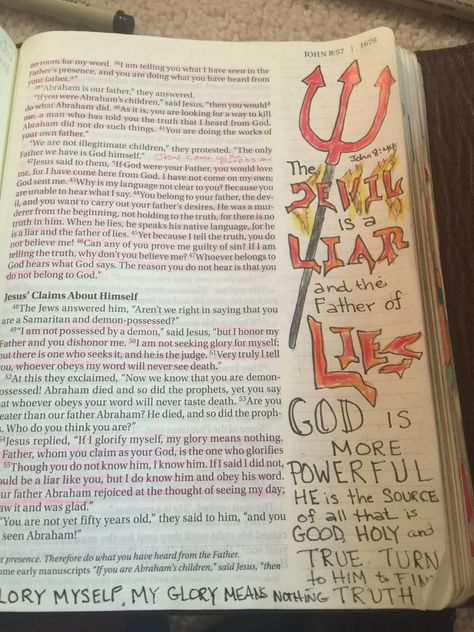 JOHN 8:57 | 1679
no room for my word. 38I am telling you what I have seen in the
Father's presence, and you are doing what you have heard from
your father."
39"Abraham is our father," they answered.
"If you were Abraham's children," said Jesus, "then you would
do what Abraham did. 40As it is, you are looking for a way to kill
me, a man who has told you the truth that I heard from God.
Abraham did not do such things. 41You are doing the works of
your own father."
"We are not illegitimate children," they protested. "The only
Father we have is God himself."
Jesus came with
42Jesus said to them, "If God were your Father, you would love
me, for I have come here from God. I have not come on my own;
God sent me. 43Why is my language not clear to you? Because you
are unable to hear what I say. 44You belong to your father, the dev-
il, and you want to carry out your father's desires. He was a mur-
derer from the beginning, not holding to the truth, for there is no
truth in him. When he lies, he speaks his native language, for he
is a liar and the father of lies. 45Yet because I tell the truth, you do
not believe me! 46Can any of you prove me guilty of sin? If I am
telling the truth, why don't you believe me? 47Whoever belongs to
God hears what God says. The reason you do not hear is that you
do not belong to God."
Jesus' Claims About Himself
48The Jews answered him, "Aren't we right in saying that you
are a Samaritan and demon-possessed?"
49"I am not possessed by a demon," said Jesus, "but I honor my
Father and you dishonor me. 50I am not seeking glory for myself;
but there is one who seeks it, and he is the judge. 51Very truly I tell
you, whoever obeys my word will never see death."
52At this they exclaimed, "Now we know that you are demon-
possessed! Abraham died and so did the prophets, yet you say
that whoever obeys your word will never taste death. 53Are you
eater than our father Abraham? He died, and so did the proph-
s. Who do you think you are?"
54Jesus replied, "If I glorify myself, my glory means nothing.
Father, whom you claim as your God, is the one who glorifies
55Though you do not know him, I know him. If I said I did not,
ould be a liar like you, but I do know him and obey his word.
ur father Abraham rejoiced at the thought of seeing my day;
aw it and was glad."
"You are not yet fifty years old," they said to him, "and you
seen Abraham!"
presence. Therefore do what you have heard from the Father.
ome early manuscripts "If you are Abraham's children," said Jesus, "then
LORY MYSELF, MY GLORY MEANS NOTHING
John 8:44
The
DEVIL
is a
LIAR
and the
Father of
LIES
GOD IS
MORE
POWERFUL
HE is the SOURCE
of all that is
GOOD, HOLY and
TRUE. TURN
to HIM to
TRUTH